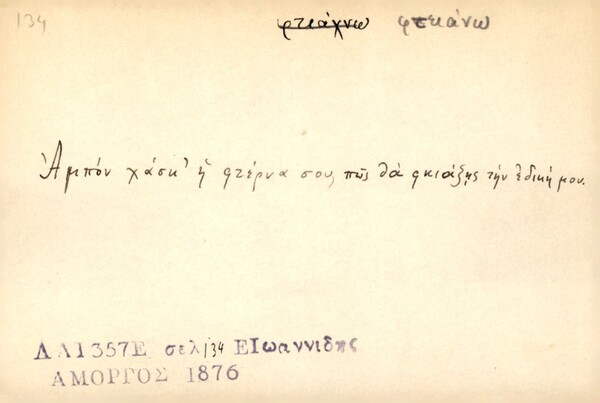 134
φτιάχνω φτειάνω
Ἀμπόν χάσκ' ἡ φτέρνα σους πῶς θὰ φκιάξῃς τὴν ἐδική μου.
ΛΑ1357Ε σελ134 ΕΙωαννιδης
ΑΜΟΡΓΟΣ 1876